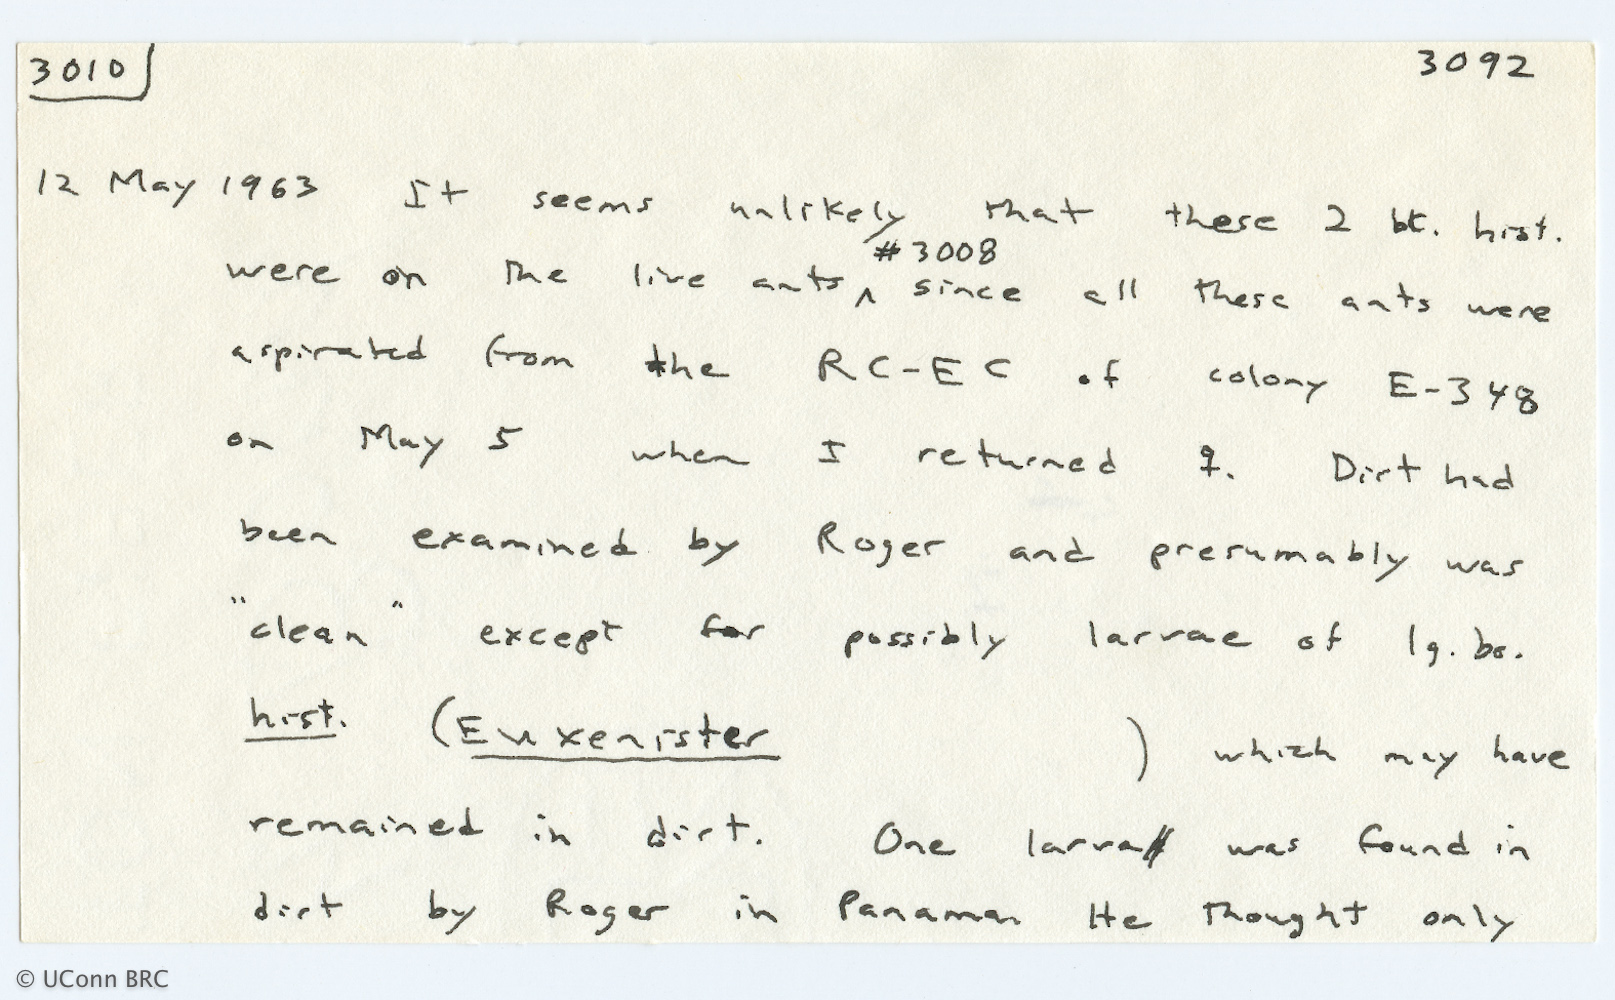 3010 3092
12 May 1963 It seems unlikely that these 2 bk. hist.
#3008
were on the live ants ^ since all these ants were
aspirated from the RC-EC of colony E-348
on May 5 when I returned ♀. Dirt had
been examined by Roger and presumably was
"clean" except for possibly larvae of lg. br.
hist. (Euxenister ) which may have
remained in dirt. One larva was found in
dirt by Roger in Panama. He thought only
© UConn BRC